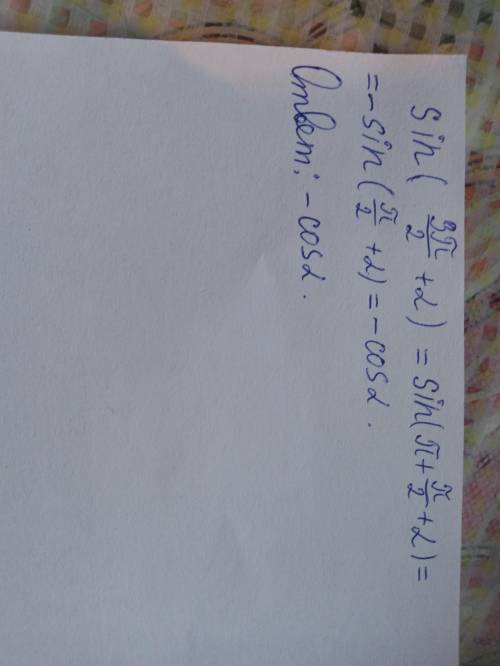 sin( 3π/2 + α) = sin(π + π/2 + α) =
= - sin (π/2 + α) = - cos α.
Ответ: - cos α.